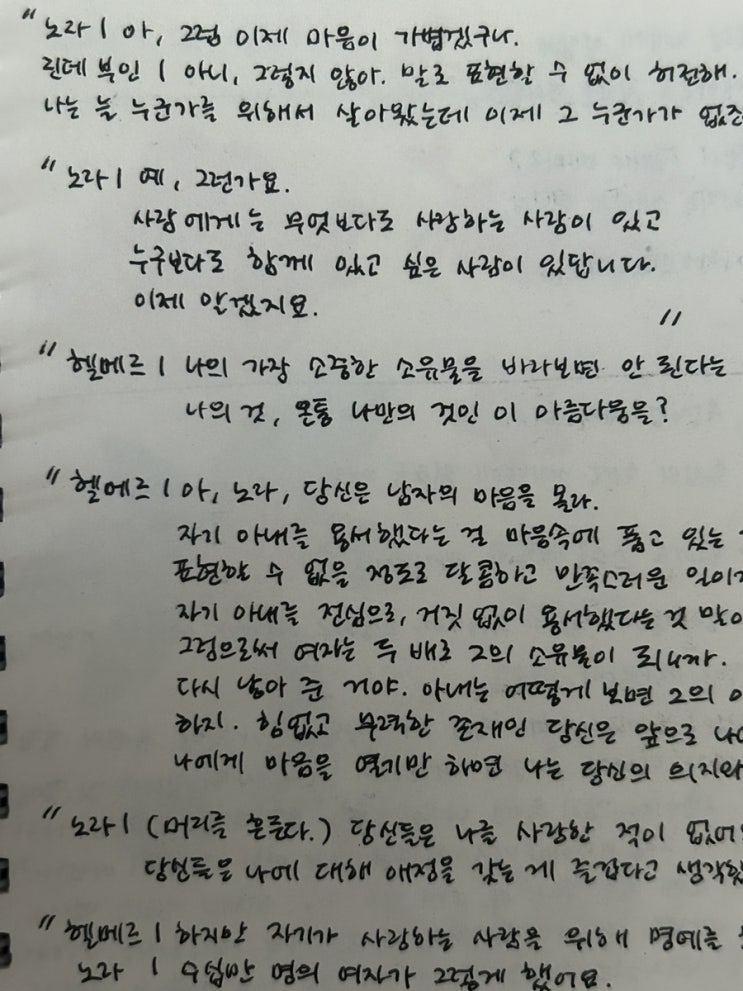 "노라ㅣ아, 그럼 이제 마음이 가볍겠구나.
린데 부인ㅣ아니, 그렇지 않아. 말로 표현할 수 없이 허전해.
나는 늘 누군가를 위해서 살아왔는데 이제 그 누군가가
"노라ㅣ예, 그런가요.
사람에게는 무엇보다도 사랑하는 사람이 있고
누구보다도 함께 있고 싶은 사람이 있답니다.
이제 알겠지요.
"
"헬메르ㅣ나의 가장 소중한 소유물을 바라보면 안 된다는
나의 것, 온통 나만의 것인 이 아름다움을?
"헬메르ㅣ아, 노라, 당신은 남자의 마음을 몰라.
자기 아내를 용서했다는 걸 마음속에 품고 있는
표현할 수 없을 정도로 달콤하고 만족스러운 일이지
자기 아내를 진심으로, 거짓 없이 용서했다는 것 말이
그럼으로써 여자는 두 배로 그의 소유물이 되니까.
다시 낳아 준 거야. 아내는 어떻게 보면 그의
하지. 힘없고 무력한 존재인 당신은 앞으로
나에게 마음을 열기만 하면 나는 당신의 의지와
"노라ㅣ(머리를 흔든다.) 당신들은 나를 사랑한 적이 없어
당신들은 나에 대해 애정을 갖는 게 즐겁다고 생각했
"헬메르ㅣ하지만 자기가 사랑하는 사람을 위해 명예를
노라ㅣ수십만 명의 여자가 그렇게 했어요.